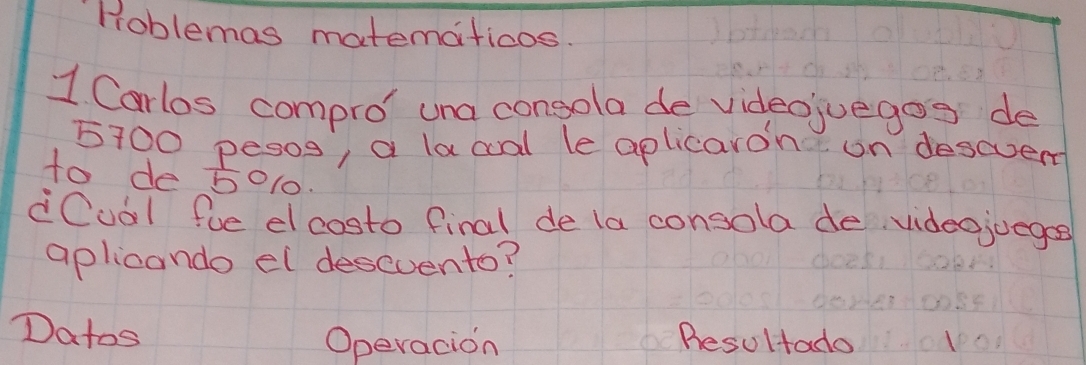 Problemas matemáticos.
1. Carlos compró una consola de videojuegos de
5700 pesos, a la cual le aplicarón un descuen
to de 5%.
¿Cuál fue el costo final de la consola de videojuegos
aplicando el descuento?
Datos Operación Resultado